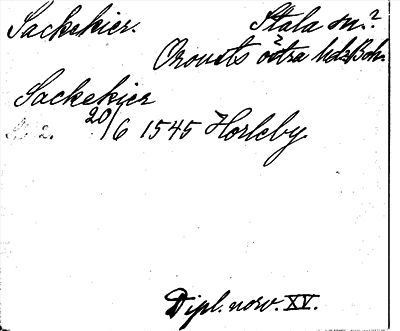 Sackekier. Stala sn.?
Orousts östra hd. Boh.
Sackekier
2. 20/6 1545 Horleby
Dipl. norv. XV.